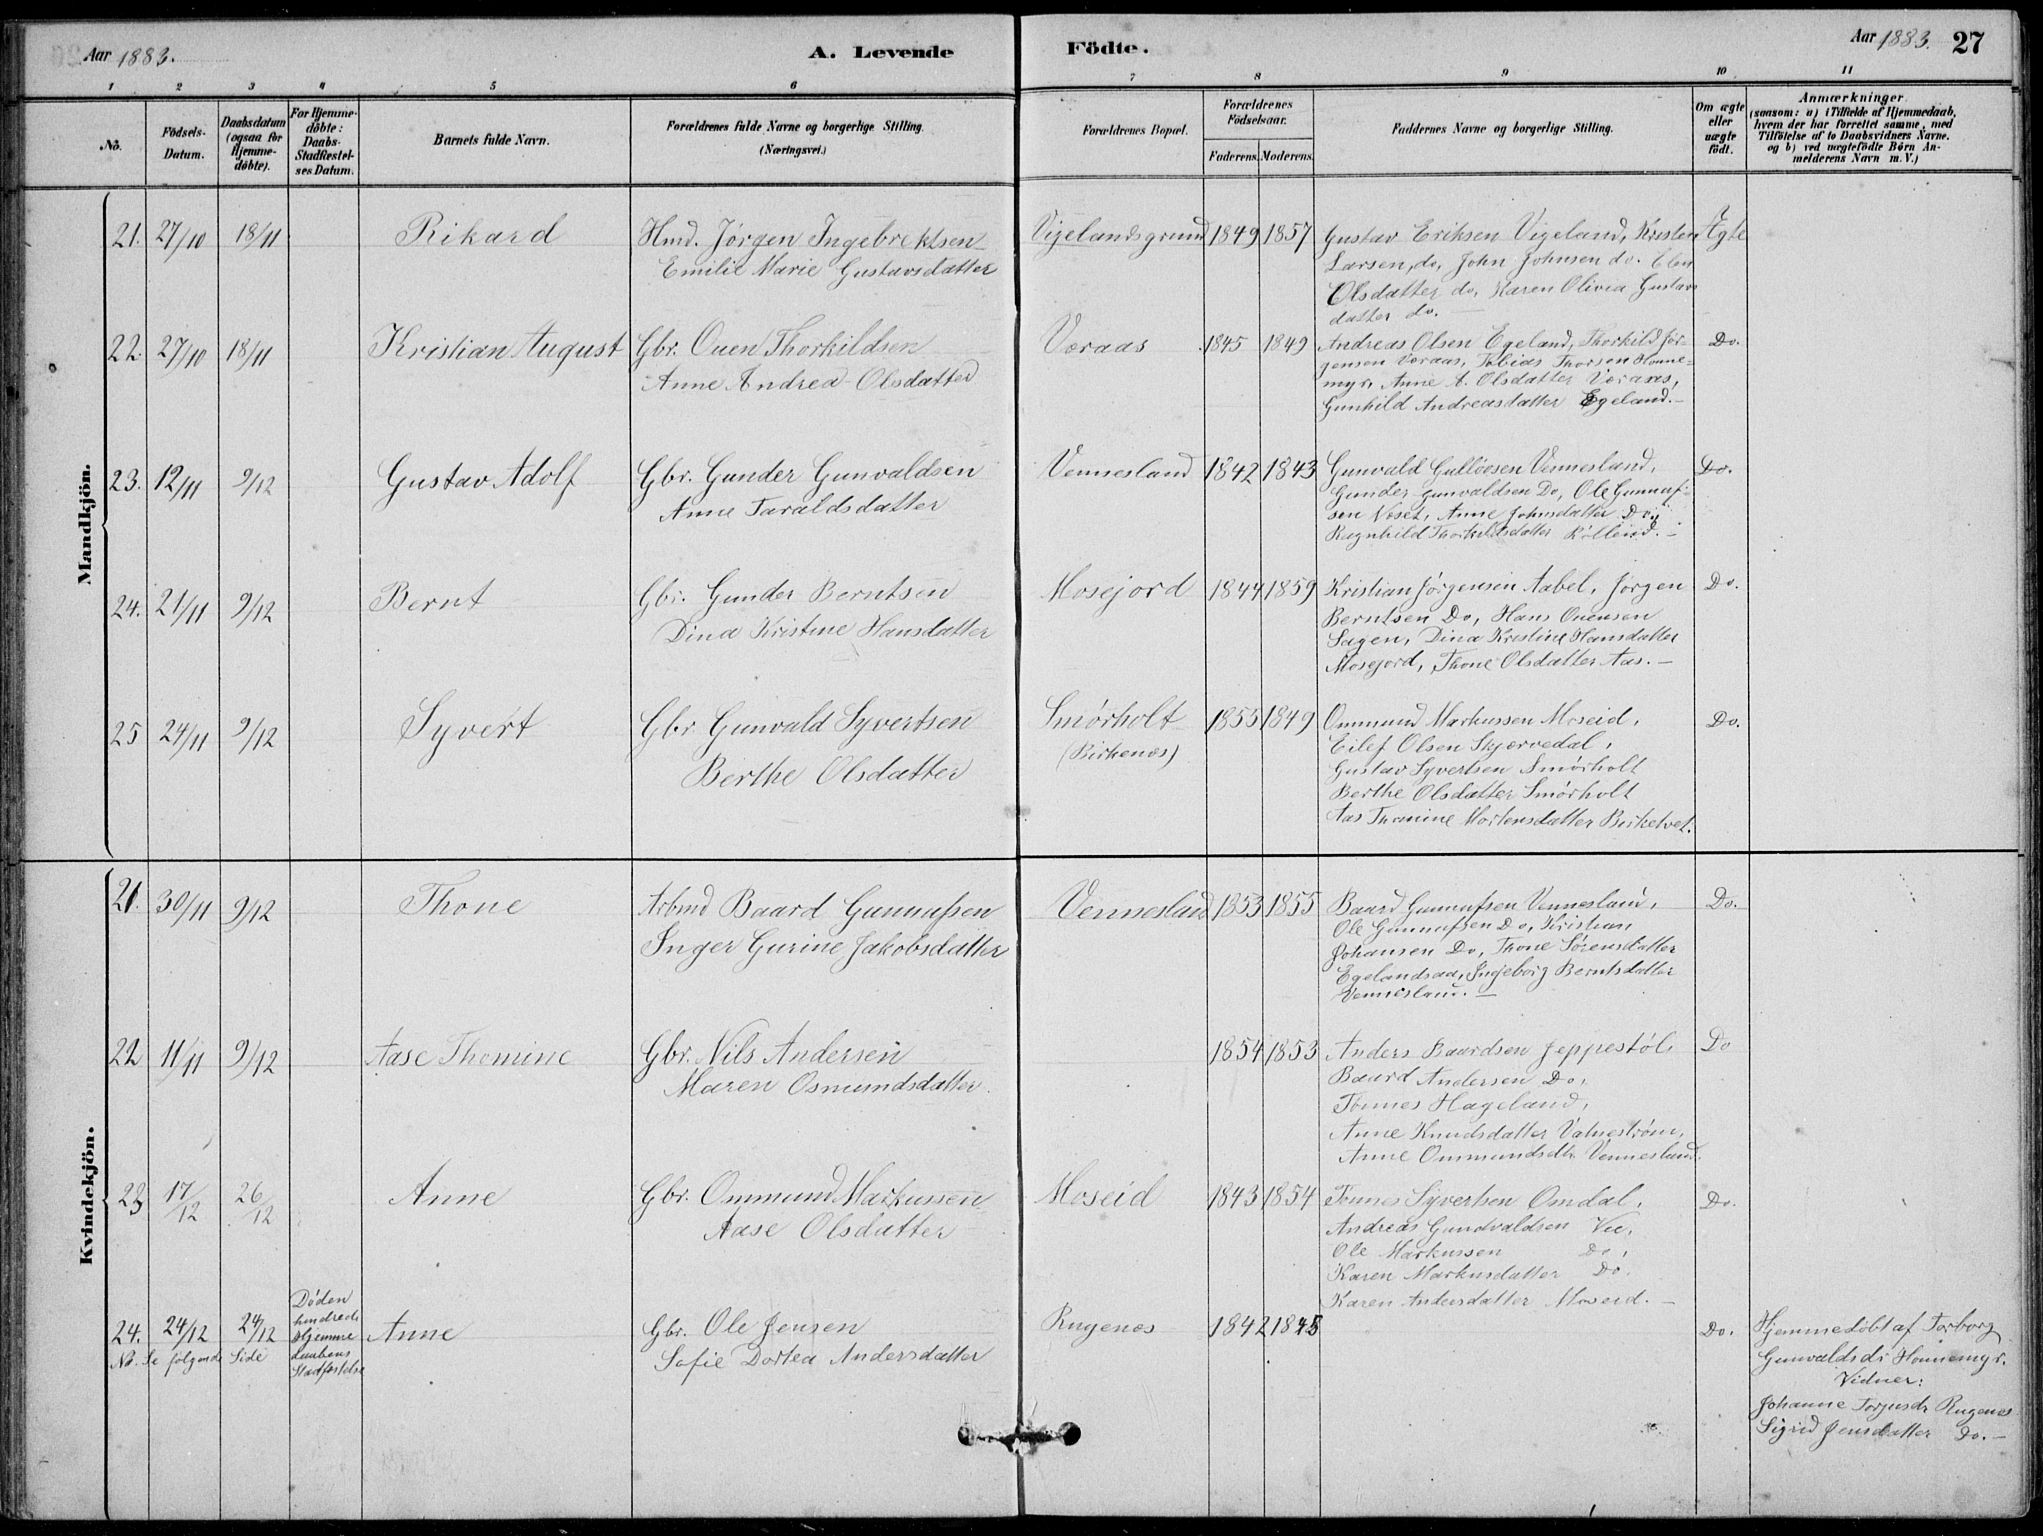 Aar 1883.
A. Levende
Födte.
Aar 1883.
27
1 2 3 4 5 6 7 8 9 10 11
No.
Födsels-
Datum.
Daabsdatum
(ogsaa for
Hjemme-
döbte).
For Hjemme-
döbte:
Daabs-
Stadfæstel-
ses Datum.
Barnets fulde Navn.
Forældrenes fulde Navne og borgerlige Stilling.
(Næringsvei.)
Forældrenes Bopæl.
Forældrenes
Födselsaar.
Faderens. Moderens.
Faddernes Navne og borgerlige Stilling.
Om ægte
eller
uægte
födt.
Anmærkninger
(saasom: a) i Tilfælde af Hjemmedaab,
hvem der har forrettet samme, med
Tilföielse af to Daabsvidners Navne.
og b) ved uægtefödte Börn An-
melderens Navn m. V.)
Mandkjön.
21. 27/10 18/11 Rikard
Hmd. Jørgen Ingebrektsen
Emilie Marie Gustavsdatter
Vigelandsgrund 1849 1857
Gustav Eriksen Vigeland, Kristen
Larsen, do, John Johnsen do. Elen
Olsdatter do, Karen Olivia Gustavs
datter do. —
Ægte
22. 27/10 18/11 Kristian August
Gbr. Ouen Thorkildsen
Anne Andrea Olsdatter
Voraas 1845 1849
Andreas Olsen Egeland, Thorkild Jør-
gensen Voraas, Tobias Thorsen Honne-
myr, Anne A. Olsdatter Voraas,
Gunhild Andreasdatter Egeland. —
Do.
23. 12/11 9/12 Gustav Adolf
Gbr. Gunder Gunvaldsen
Anne Taraldsdatter
Vennesland 1842 1843
Gunvald Gulløvsen Vennesland,
Gunder Gunvaldsen Do, Ole Gunnuf-
sen Noset, Anne Johnsdatter Do,
Ragnhild Thorkildsdatter
Do.
24. 21/11 9/12 Bernt
Gbr. Gunder Berntsen
Dina Kristine Hansdatter
Mosejord 1844 1859
Kristian Jørgensen Aabel, Jørgen
Berntsen Do, Hans Ouensen
Sagen, Dina Kristine Hansdatter
Mosejord, Thone Olsdatter Aas. —
Do.
25 24/11 9/12 Syvert
Gbr. Gunvald Syvertsen
Berthe Olsdatter
Smørholt
(Birkenes)
1855 1849
Ommund Markussen Moseid,
Eilef Olsen Skjærvedal,
Gustav Syvertsen Smørholt
Berthe Olsdatter Smørholt
Aas Thomine Mortensdatter Birketvet.
Do.
Kvindekjön.
21. 30/11 9/12 Thone
Arbmd Baard Gunnufsen
Inger Gurine Jakobsdatter
Vennesland 1853 1855
Baard Gunnufsen Vennesland,
Ole Gunnufsen Do, Kristian
Johansen Do, Thone Sørensdatter
Egelandsaa, Ingeborg Berntsdatter
Vennesland. —
Do.
22 11/11 9/12 Aase Thomine
Gbr. Nils Andersen
Maren Osmundsdatter.
1854 1853
Anders Baardsen Jeppestøl,
Baard Andersen Do,
Tønnes Hageland,
Anne Knudsdatter Vatnestrøm,
Anne Ommundsdtr Vennesland.
Do
23 17/12 26/12 Anne
Gbr. Ommund Markussen
Aase Olsdatter
Moseid 1843 1854
Tønnes Syvertsen Omdal,
Andreas Gundvaldsen Vee,
Ole Markussen Do,
Karen Markusdatter Do.
Karen Andersdatter Moseid. —
Do.
24. 24/12 24/12
Døden
hindrede
Hjemme
daabens
Stadfæstelse
Anne
No. Se følgende Side
Gbr. Ole Jensen
Sofie Dortea Andersdatter
Rugenes 1842 1845
Do.
Hjemmedøbt af Torborg
Gunvaldsdr Honnemyr.
Vidner:
Johanne Torjusdr Rugenes
Sigrid Jensdatter Do. —